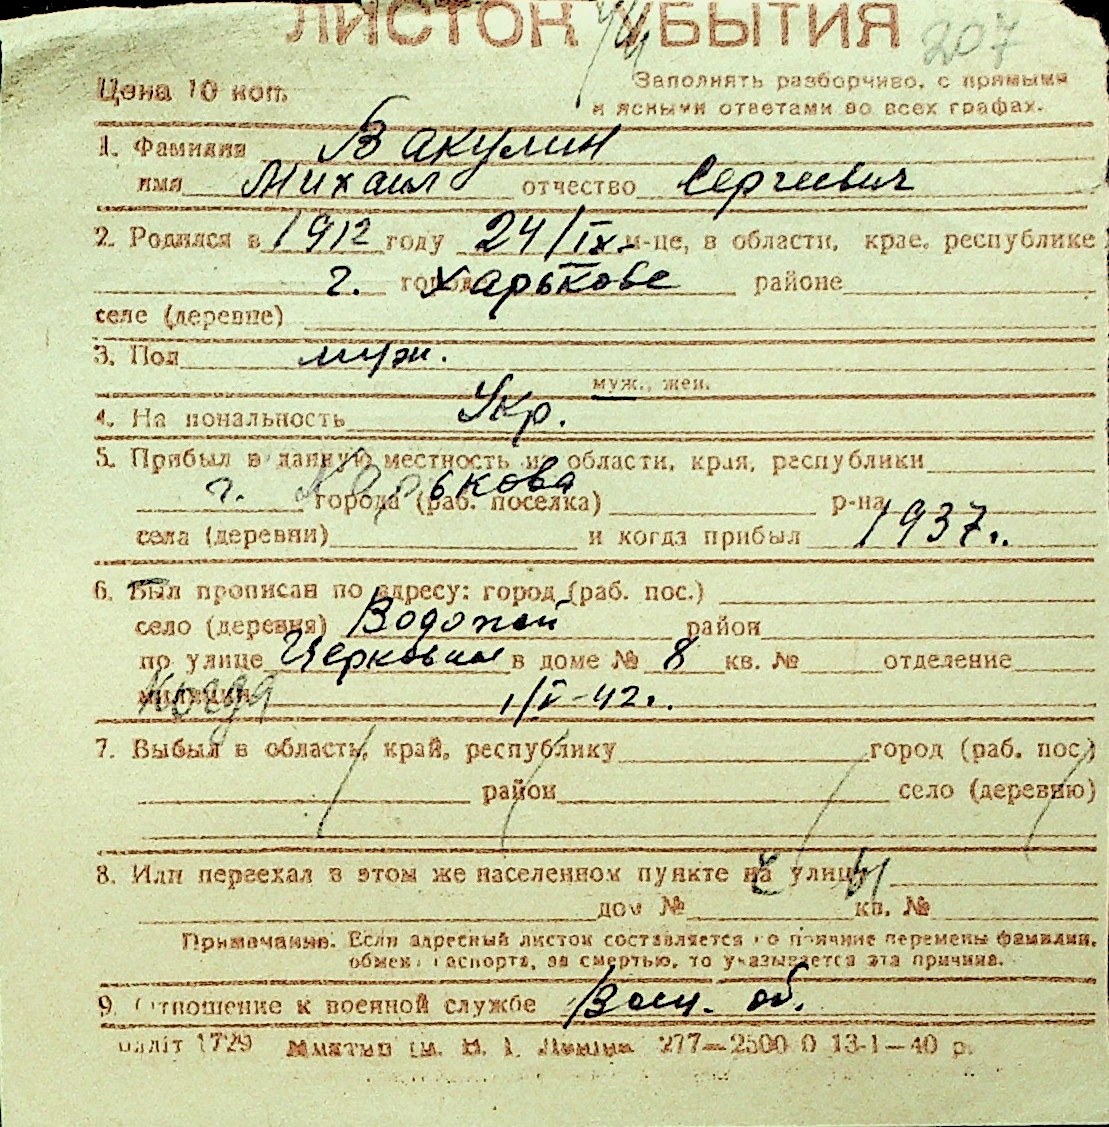 ЛИСТОК УБЫТИЯ 207
Цена 10 коп. Заполнять разборчиво, с прямыми
и ясными ответами во всех графах.
1. Фамилия Вакулин
имя Михаил отчество Сергеевич
2. Родился в 1912 году 24/IX м-це, в области, крае, республике
г. городе Харькове районе
селе (деревне)
3. Пол муж.
муж., жен.
4. Национальность Укр.
5. Прибыл в данную местность из области, края, республики
г. Харькова города (раб. поселка) р-на
села (деревни) и когда прибыл 1937г.
6. Был прописан по адресу: город (раб. пос.)
село (деревня) район
по улице Церковная в доме № 8 кв. № отделение
милиции Когда 1/V-42г.
7. Выбыл в область, край, республику город (раб. пос.)
район село (деревню)
8. Или переехал в этом же населенном пункте на улицу
дом № кв. №
Примечание. Если адресный листок составляется по причине перемены фамилии,
обмена паспорта, за смертью, то указывается эта причина.
9. Отношение к военной службе об.
Обліт 1729 277—2500 0 13-1—40 р.